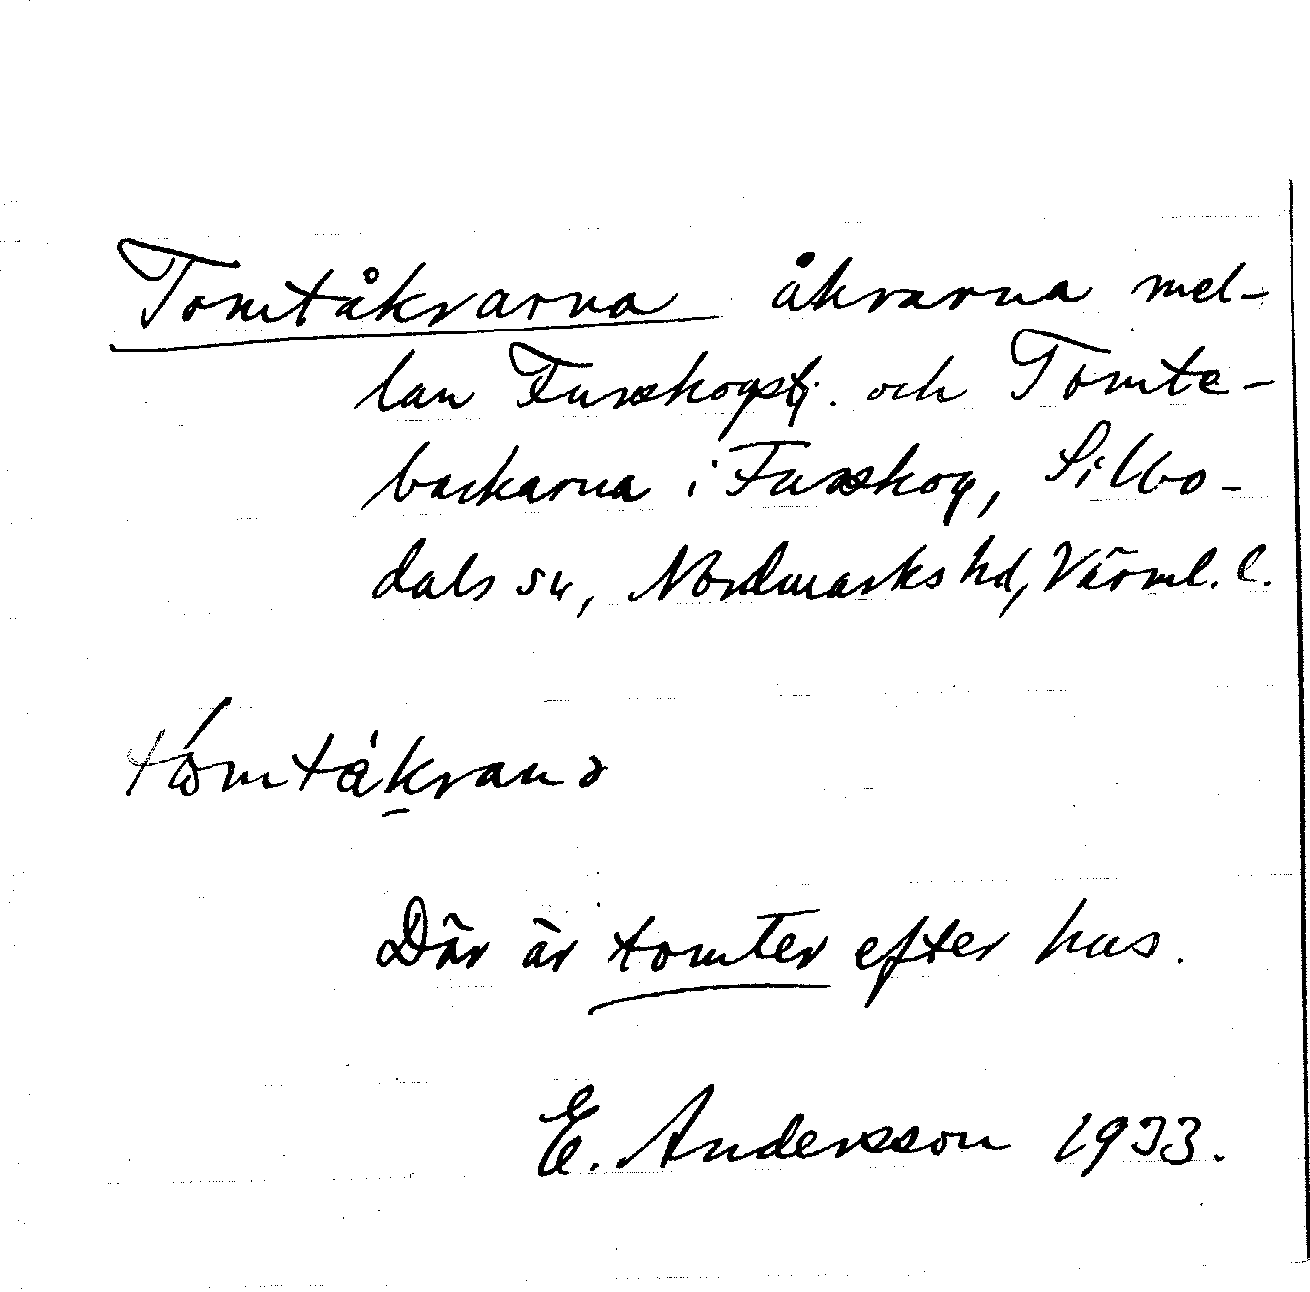 Tomtåkrarna åkrarna mel-
lan Furskogstj. och Tomte-
backarna i Furskog, Silbo-
dals sn, Nordmarks hd, Värml. l.
tómtåk̠ranɔ
Där är tomter efter hus.
E. Andersson 1933.